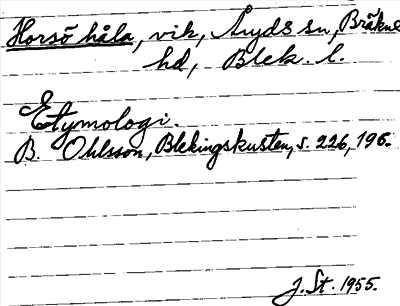 Horsö håla, vik, Åryds sn, Bräkne
hd, Blek. l.
Etymologi.
B. Ohlsson, Blekingskusten, s. 226, 196.
J. St. 1955.